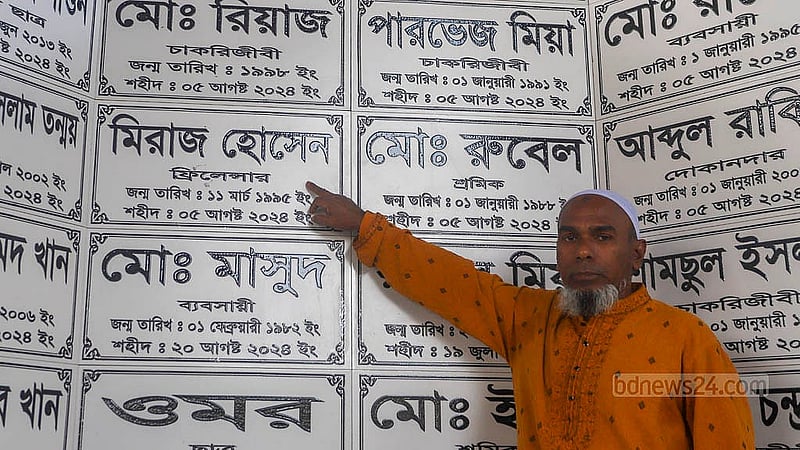 ছাত্র
২০১৩ ইং
২০২৪ ইং
মোঃ রিয়াজ
চাকরিজীবী
জন্ম তারিখ : ১৯৯৮ ইং
শহীদ : ০৫ আগষ্ট ২০২৪ ইং
পারভেজ মিয়া
চাকরিজীবী
জন্ম তারিখ : ০১ জানুয়ারী ১৯৯১ ইং
শহীদ : ০৫ আগষ্ট ২০২৪ ইং
মোঃ
ব্যবসায়ী
জন্ম তারিখ : ১ জানুয়ারী ১৯৯৫
শহীদ : ০৫ আগষ্ট ২০২৪
তন্ময়
২০০২ ইং
২০২৪ ইং
মিরাজ হোসেন
ফ্রিলেন্সার
জন্ম তারিখ : ১১ মার্চ ১৯৯৫ ইং
শহীদ : ০৫ আগষ্ট ২০২৪ ইং
মোঃ রুবেল
শ্রমিক
জন্ম তারিখ : ০১ জানুয়ারী ১৯৮৮
শহীদ : ০৫ আগষ্ট ২০২৪
আব্দুল
দোকানদার
জন্ম তারিখ : ০১ জানুয়ারী
শহীদ : ০৫ আগষ্ট ২০২৪
খান
২০০৬ ইং
২০২৪ ইং
মোঃ মাসুদ
ব্যবসায়ী
জন্ম তারিখ : ০১ ফেব্রুয়ারী ১৯৮২ ইং
শহীদ : ২০ আগষ্ট ২০২৪ ইং
জন্ম তারিখ : ০১
শহীদ : ১৯
চাকরিজীবী
জানুয়ারী
আগষ্ট ২০২৪
খান
ওমর
ছাত্র
মোঃ
শ্রমিক
bdnews24.com